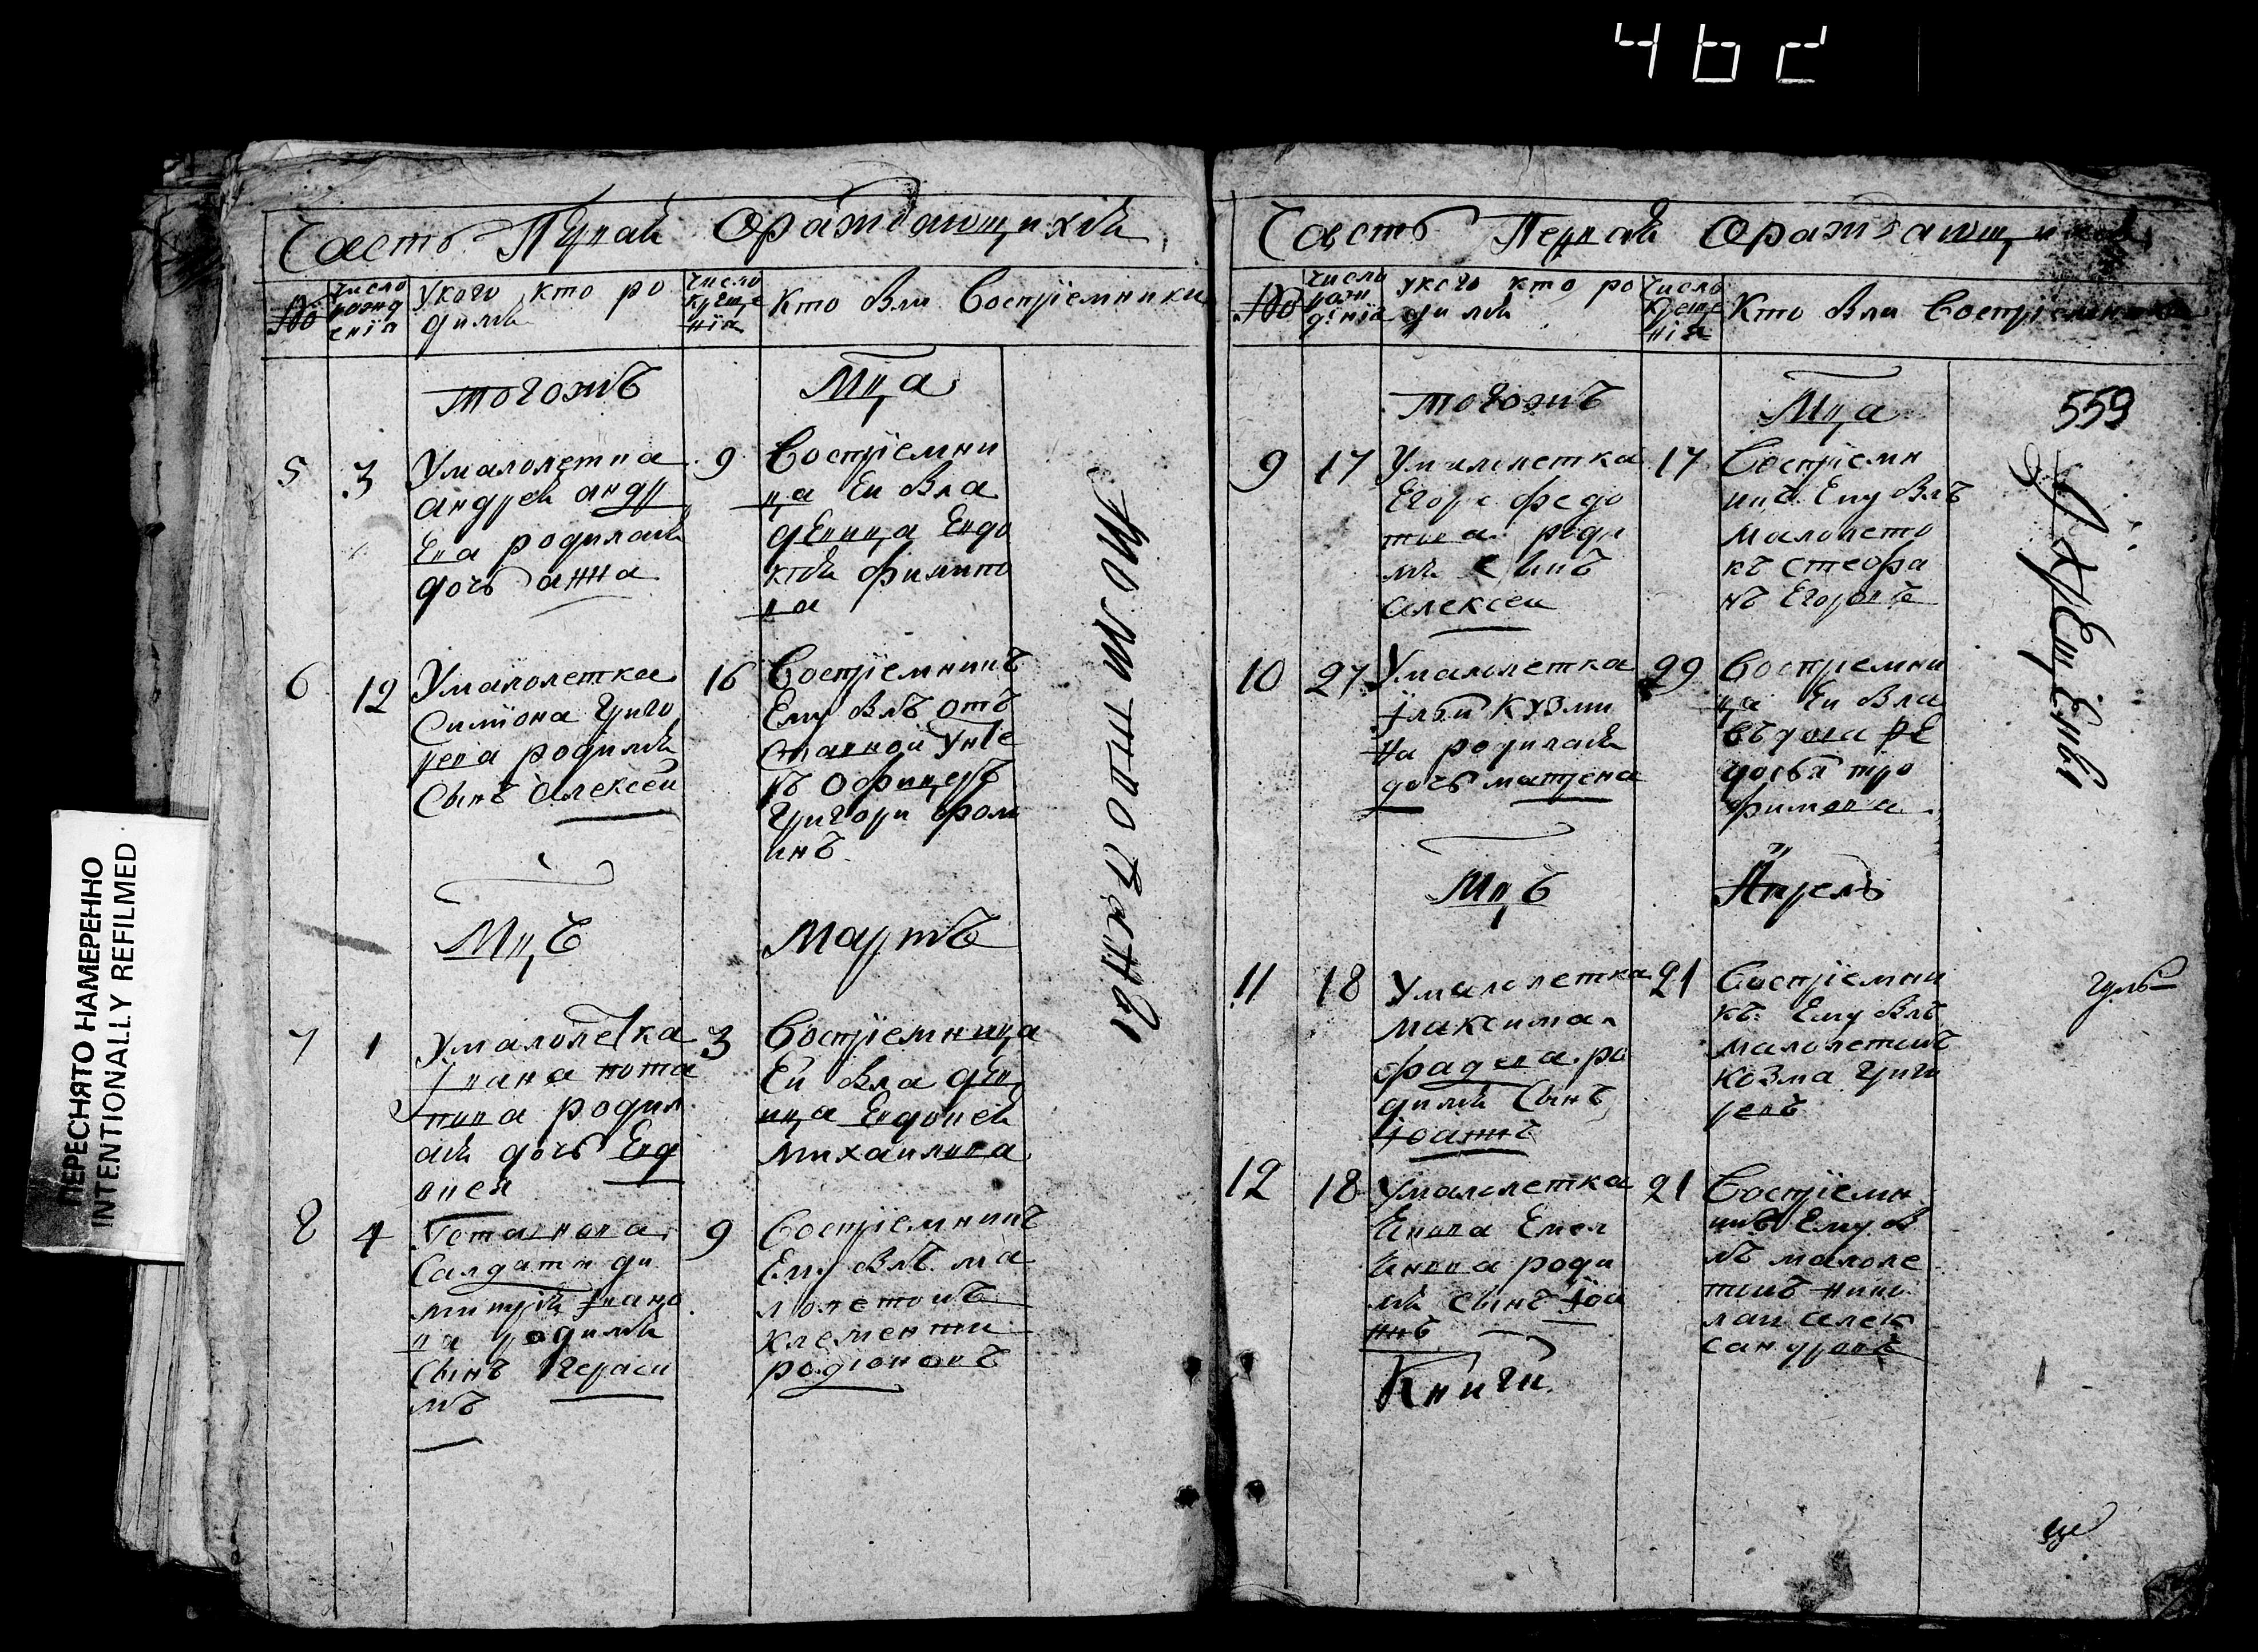 462
Часть Первая ораждающихся
№
число рождения
У кого кто родился
число крещения
Кто был восприемники
тогожъ Мца
5 3
У малолетка
андрея андр
ева родилась
дочь анна
9
Восприемни
ца Ей была
девица Евдо
кия филипо
ва
6 12
У малолетка
Симиона Григо
рева родился
Сынъ Алексей
16
Восприемникъ
Ему былъ отъ
ставной Унте
ръ Офицеръ
Григори фом
инъ
Мцъ Мартъ
7 1
У малолетка
Ивана пота
пова родил
ась дочь Евд
окея
3
Восприемница
Ей была дев
ица Евдокея
Михаилова
8 4
Салдата ди
митрия Ивано
ва родился
Сынъ Гераси
мъ
9
Восприемникъ
Ему былъ ма
лолетокъ
клементи
родионовъ
Часть Первая ораждающихся
№
число рождения
у кого кто родился
число крещения
Кто был восприемники
559
тогожъ Мца
9 17
У малолетка
Егора федо
това роди
лся Сынъ
алексеи
17
Восприемн
икъ Ему былъ
малолето
къ стефа
нъ Егоровъ
10 27
У малолетка
Ильи кузми
на родилась
дочь матрена
29
Восприемни
ца Ей была
въдова фе
досья тро
фимова
Мцъ Апрель
11 18
У малолетка
максима
фадева ро
дился Сынъ
Иоаннъ
21
Восприемни
къ Ему былъ
малолетокъ
козма Григо
ревъ
12 18
У малолетка
Якова Емел
янова роди
лся сынъ Иоа
ннъ
21
Восприемн
икъ Ему бы
лъ малоле
токъ нико
лаи алек
сандровъ
Книги
ПЕРЕСНЯТО НАМЕРЕННО
INTENTIONALLY REFILMED